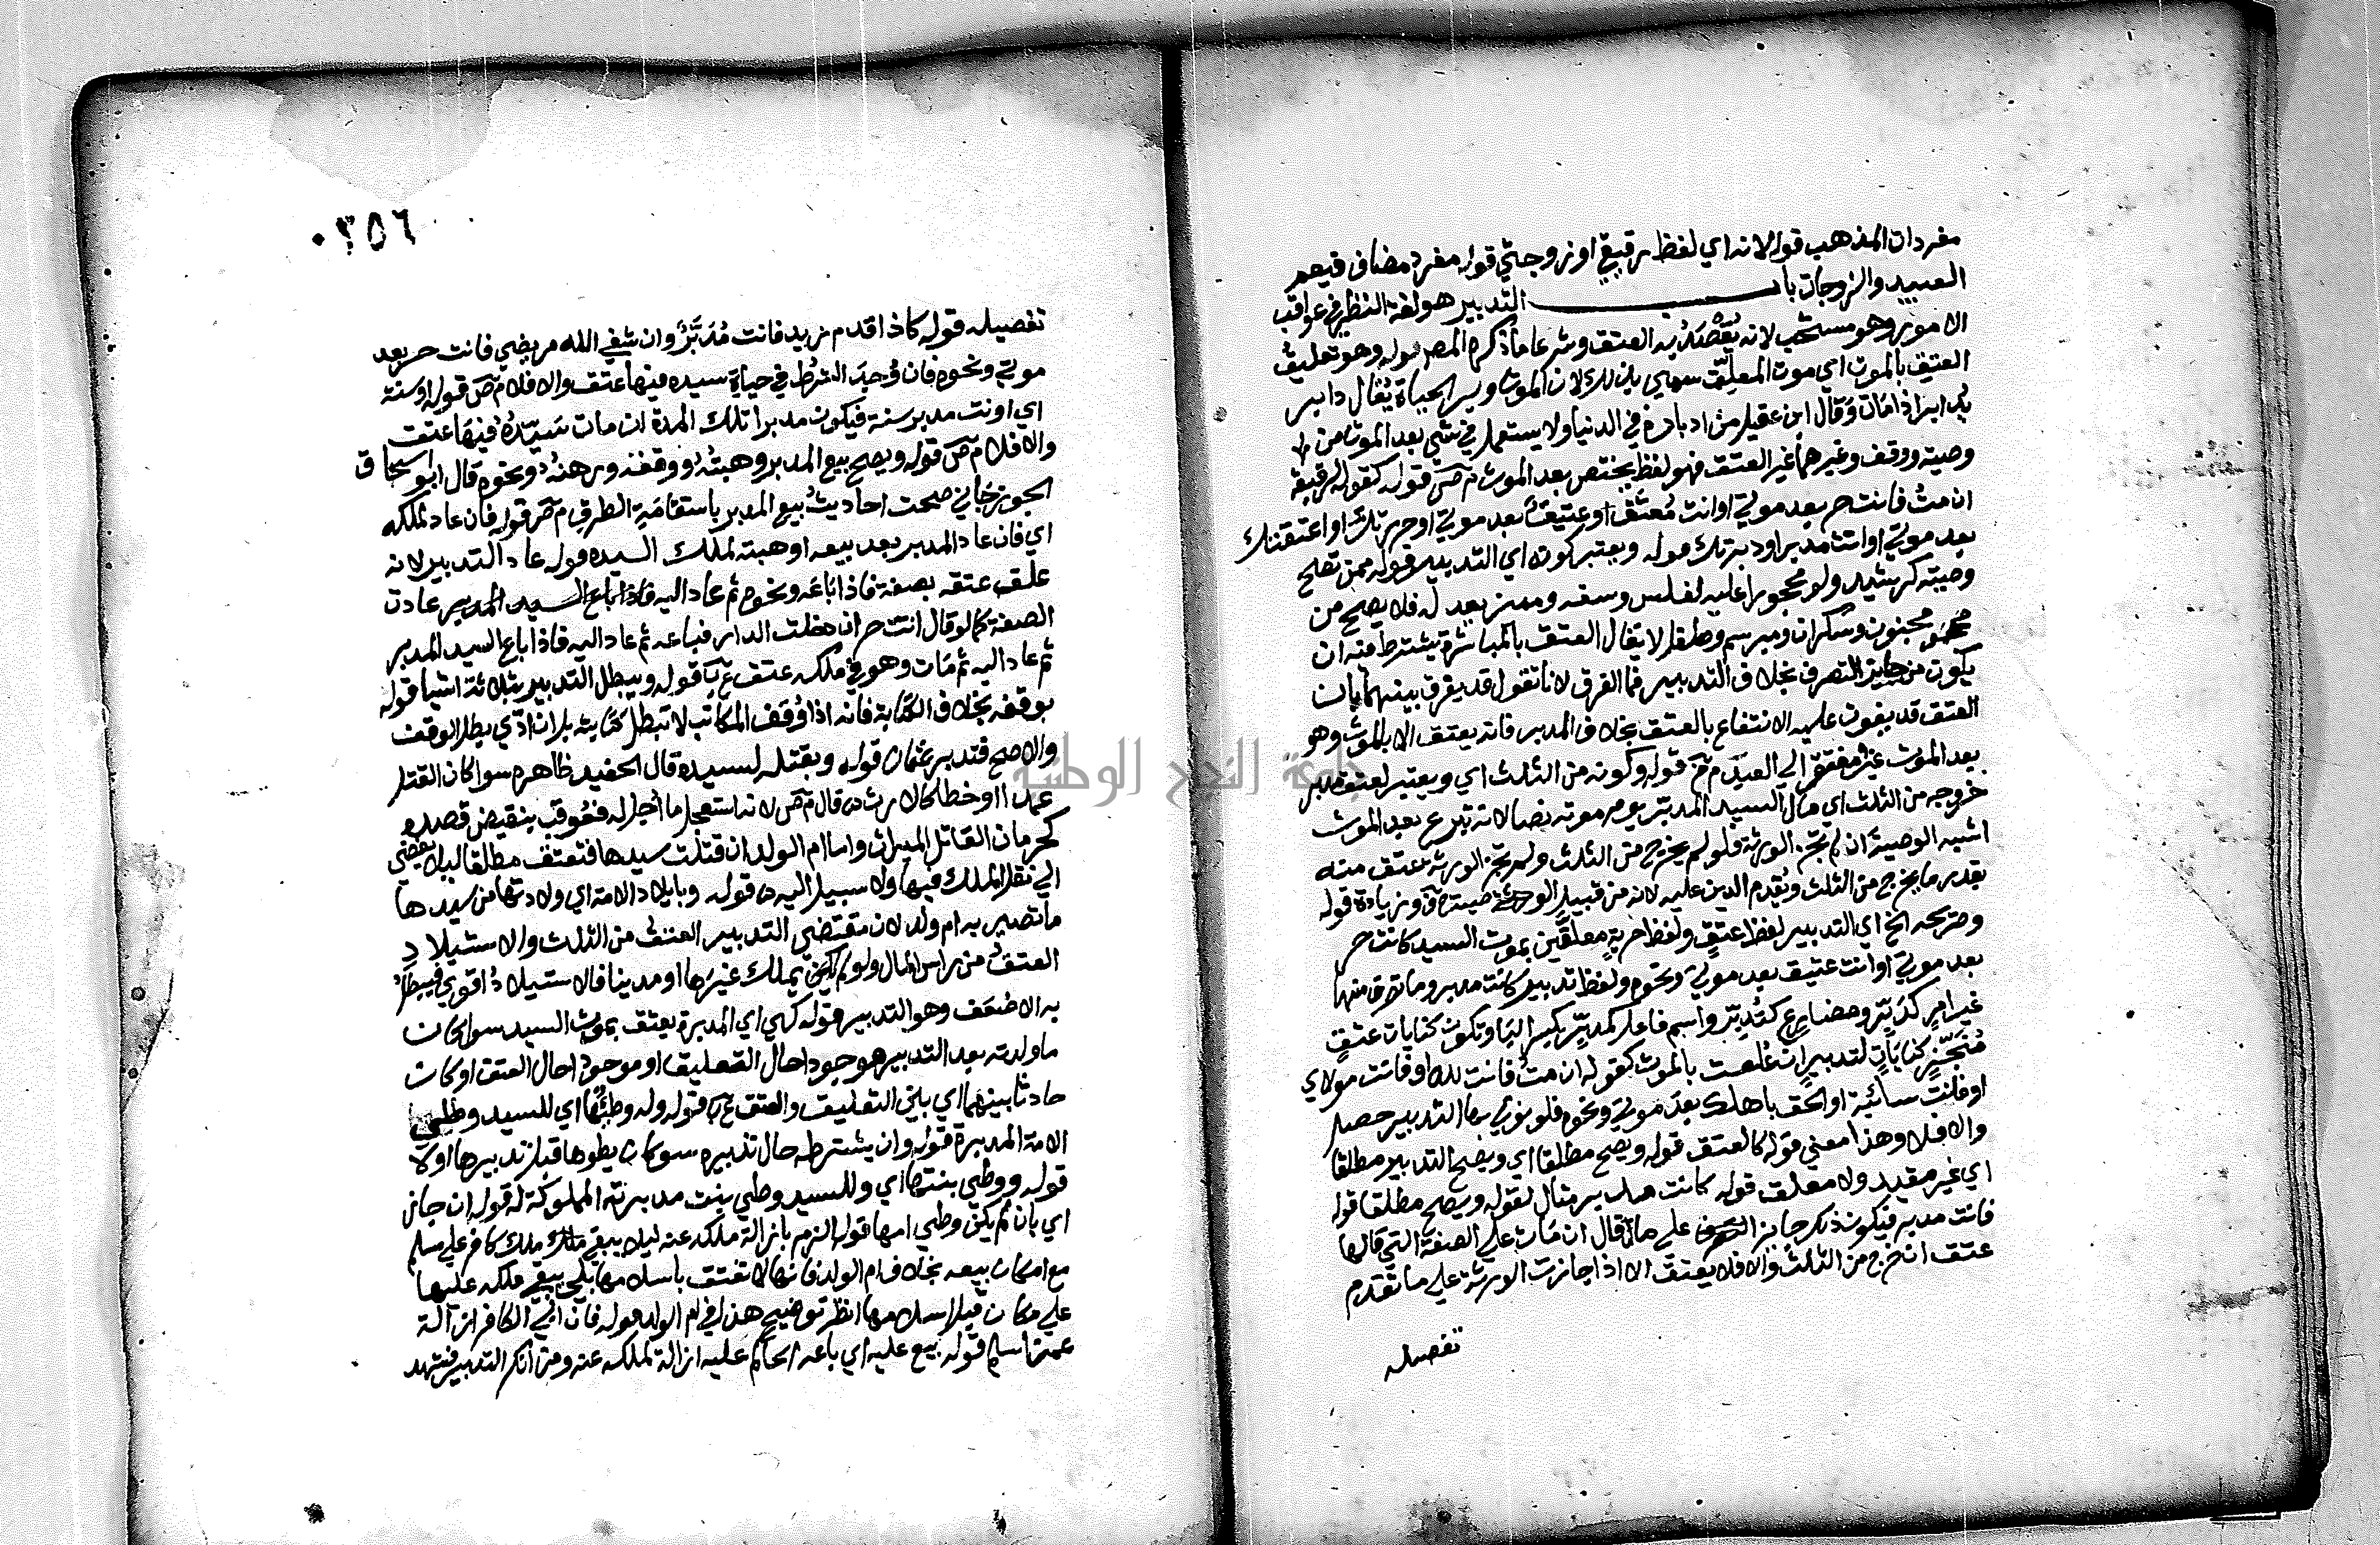 مفردات المذهب قوله لانه اي لفظ رقيقي او زوجتي قوله مفرد مضاف فيعم
العبيد والزوجات باب التدبير هو لغة النظر في عواقب
الامور وهو مستحب لانه يقصد به العتق وشرعا ما ذكره المصـ قوله وهو تعليق
العتق بالموت اي موت المعلق سمي بذلك لان الموت دبر الحياة يقال دابر
يدابر اذا مات وقال ابن عقيل من ادباره في الدنيا ولا يستعمل في شي بعد الموت من
وصية ووقف وغيرهما غير العتق فهو لفظ يختص بعد الموت م ص قوله كقوله لرقيقه
ان مت فانت حر بعد موتي او انت معتق او عتيق بعد موتي او حررتك او اعتقتك
بعد موتي او انت مدبر او دبرتك قوله ويعتبر كونه اي التدبير قوله ممن تصح
وصيته كرشيد ولو محجورا عليه لفلس وسفه ومميز يعد له فلا يصح من
مجنون وسكران ومبرسم وطفل لا يقال العتق بالمباشرة يشترط منه ان
يكون من جايز التصرف بخلاف التدبير فما الفرق لانا نقول قد يفرق بينهما بان
العتق قد يفوت عليه الانتفاع بالعتق بخلاف المدبر فانه يعتق الا بالموت وهو
بعد الموت غير مفتقر الي العبد م خ قوله وكونه من الثلث اي ويعتبر لعتق مدبر
خروجه من الثلث اي مال السيد المدبر يوم موته نصا لانه تبرع بعد الموت
اشبه الوصية ان لم تجز الورثة فلو لم يخرج من الثلث ولم تجز الورثة عتق منه
بقدر ما يخرج من الثلث ويقدم الدين عليه لانه من قبيل الوصية م ص وزيادة قوله
وصريحه الخ اي التدبير لفظ عتق ولفظ حرية معلقين بموت السيد كانت حر
بعد موتي او انت عتيق بعد موتي ونحوه ولفظ تدبير كانت مدبر وما تصرف منها
غير امر كدبر ومضارع كتدبر واسم فاعل كمدبر بكسر البا وتكون كنايات عتق
منجز كنايات لتدبير ان علقت بالموت كقوله ان مت فانت لله او فانت مولاي
او فانت سائبة او الحق باهلك بعد موتي ونحوه فلو نوي بها التدبير حصل
والا فلا وهذا معني قوله كالعتق قوله ويصح مطلقا اي ويصح التدبير مطلقا
اي غير مقيد ولا معلق قوله كانت مدبر مثال لقوله ويصح مطلقا قوله
فانت مدبر فيكون ذلك جايز علي ما قال ان مات علي الصفة التي قالها
عتق ان خرج من الثلث والا فلا يعتق الا اذا جازت الورثة علي ما تقدم
تفصيله
٠٣٥٦
تفصيله قوله كاذا قدم زيد فانت مدبر وان شفي الله مريضي فانت حر بعد
موتي ونحوه فان وجد الشرط في حياة سيده فيها عتق والا فلا م ص قوله او سنة
اي او نت مدبر سنة فيكون مدبرا تلك المدة ان مات سيده فيها عتق
والا فلا م ص قوله ويصح بيع المدبر وهبته ووقفه ورهنه ونحوه قال ابو اسحاق
الجوزجاني صحت احاديث بيع المدبر باستقامة الطرق م ص قوله فان عاد لملكه
اي فان عاد المدبر بعد بيعه او هبته لملك السيده قوله عاد التدبير لانه
علق عتقه بصفة فاذا باعه ونحوه ثم عاد اليه فاذا باع السيد المدبر عادت
الصفة كما لو قال انت حر ان دخلت الدار فباعه ثم عاد اليه فاذا باع السيد المدبر
ثم عاد اليه ثم مات وهو في ملكه عتق ع ب قوله ويبطل التدبير بثلاثة اشيا قوله
بوقفه بخلاف الكتابة فانه اذا وقف المكاتب لا تبطل كتابته بل ان ادي بطل الوقف
والاصح فتدبر عثمان قوله وبقتله لسيده قال الحفيد ظاهره سوا كان القتل
عمدا او خطا كالارث قال م ص لانه استعجل ما اجل له فعوقب بنقيض قصده
كحرمان القاتل الميراث واما ام الولد ان قتلت سيدها فتعتق مطلقا ليلا يفضي
الي نقل الملك فيها ولا سبيل اليه قوله وبايلاد الامة اي ولادتها من سيدها
ما تصير به ام ولد لان مقتضي التدبير العتق من الثلث والاستيلاد
العتق من راس المال ولو لم يكن يملك غيرها او مدينا فالاستيلاد اقوي فيبطل
به الاضعف وهو التدبير قوله كهي اي المدبرة يعتق بموت السيد سوا كان
ما ولدته بعد التدبير موجودا حال التعليق او موجودا حال العتق او كان
حادثا بينهما اي بين التعليق والعتق ع ب قوله وله وطئها اي للسيد وطي
الامة المدبرة قوله وان يشترطه حال تدبيره سوا كان يطوها قبل تدبيرها او لا
قوله ووطي بنتها اي وللسيد وطي بنت مدبرته المملوكة له قوله ان جاز
اي بان لم يكن وطي امها قوله الزم بازالة ملكه عنه ليلا يبقي ملك كافر علي مسلم
مع امكان بيعه بخلاف ام الولد فانها لا تعتق باسلامها بل يبقي ملكه عليها
علي ما كان قبل اسلامها انظر توضيح هذا في ام الولد قوله فان ابي الكافر ازالة
عمن اسلم قوله بيع عليه اي باعه الحاكم عليه ازالة لملكه عنه ومن انكر التدبير فشهد
جامعة النجاح الوطنية